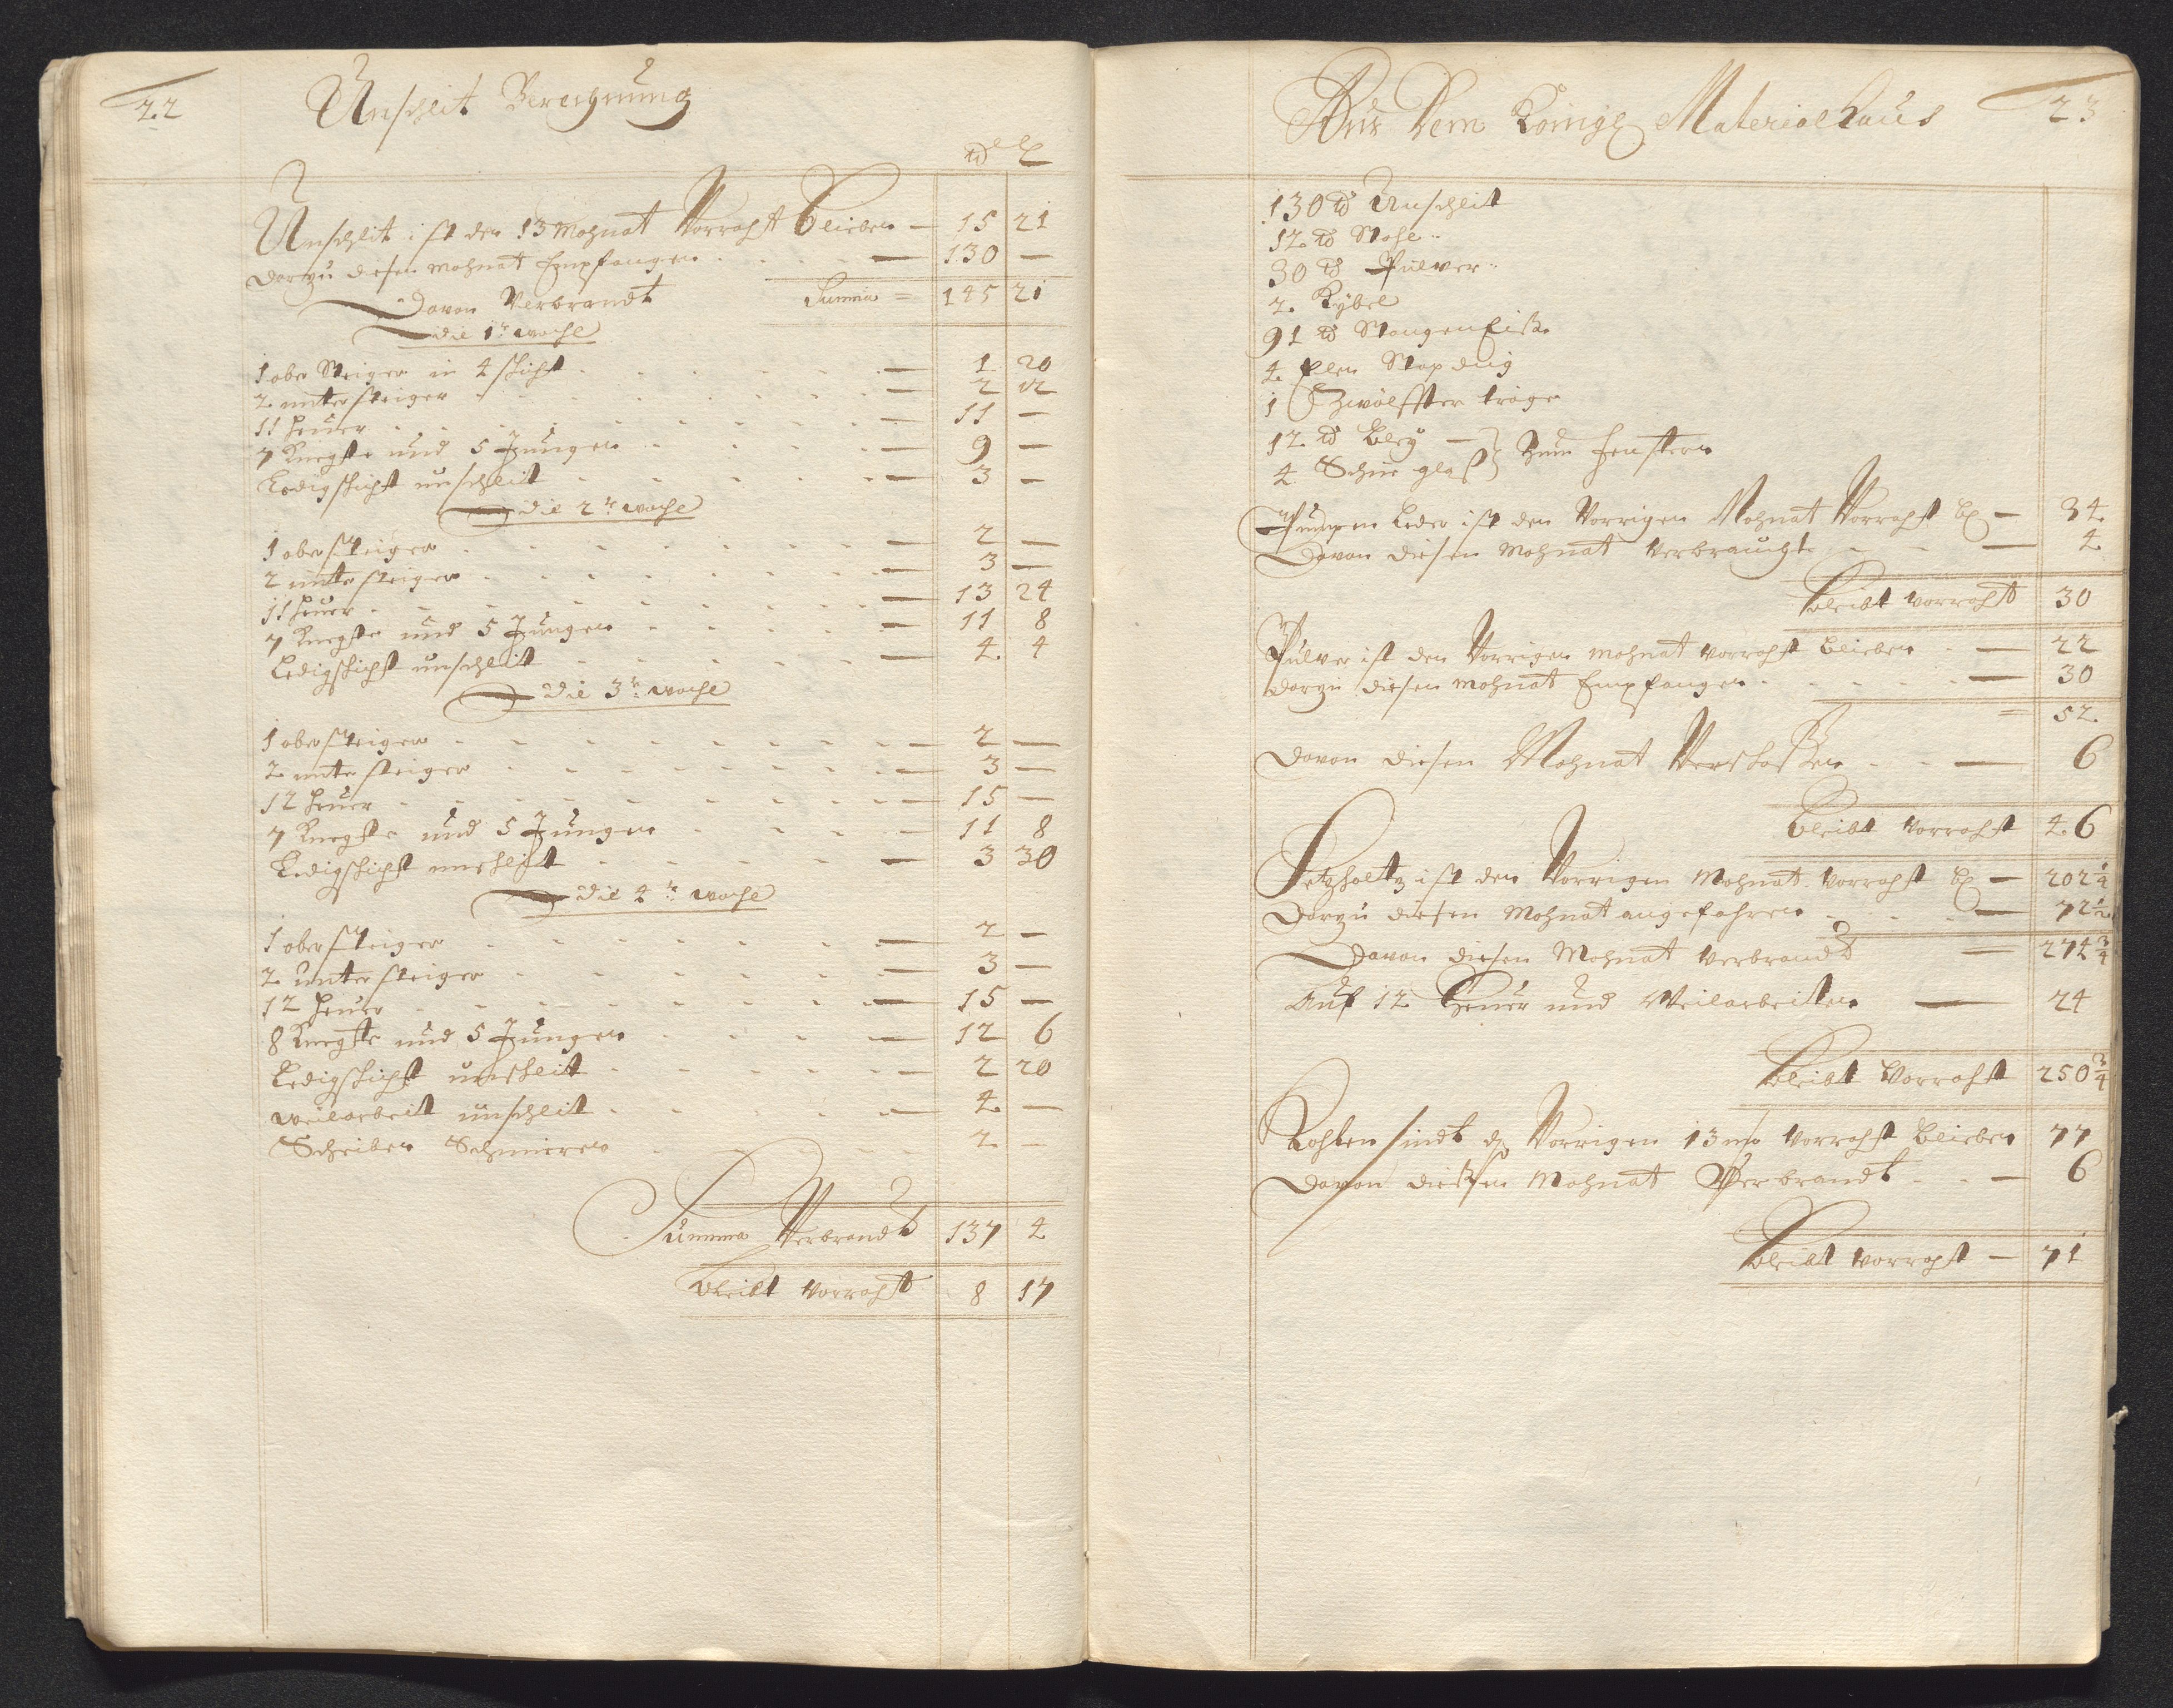 22
Unschlit Berechnung
℔ L
Unschlit ist den 13 Mohnat Vorraht blieben — 15 21
darzu diesen mohnat Empfangen — 130 —
Summa = 145 21
Davon Verbrandt
die 1te woche
1 ober Steiger in 4 schicht — 1 20
2 untersteiger — 2 12
11 heuer — 11 —
7 Knechte und 5 Jungen — 9 —
Ledigschicht unschleit — 3 —
die 2te woche
1 obersteiger — 2 —
2 untersteiger — 3 —
11 heuer — 13 24
7 Knechte und 5 Jungen — 11 8
Ledigschicht unschleit — 4 4
die 3te woche
1 obersteiger — 2 —
2 untersteiger — 3 —
12 heuer — 15 —
7 Knechte und 5 Jungen — 11 8
Ledigschicht unschleit — 3 30
die 4te woche
1 obersteiger — 2 —
2 untersteiger — 3 —
12 heuer — 15 —
8 Knechte und 5 Jungen — 12 6
Ledigschicht unschleit — 2 20
weilarbeit unschleit — 4 —
Scheiben Schmieren 2 —
Summa Verbrandt 137 4
bleibt vorraht 8 17
Aus Dem Königl Materialhaus 23
130 ℔ Unschleit
12 ℔ Stahl
30 ℔ Pulver
2 Kybel
91 ℔ Stangen Eisen
4 Elen
1 Zwölffter tröge
12 ℔ Bley —
4 glaß } Zum fenstern
Pumpen Leder ist den Vorrigen Mohnat Vorraht bl — 34
Davon diesen Mohnat verbraucht — 4
bleibt vorraht 30
Pulver ist den Vorrigen mohnat vorraht blieben — 22
darzu diesen mohnat Empfangen — 30
= 52
davon diesen Mohnat Verschoßen — 6
bleibt vorraht 46
Setzholtz ist den Vorrigen Mohnat vorraht bl — 202 1/4
Darzu diesen Mohnat angefahren — 72 1/2
Davon diesen Mohnat verbrandt = 274 3/4
Auf 12 Heuer und Weilarbeiten — 24
bleibt Vorraht 250 3/4
Kohlen sindt d Vorrigen 13 mo vorraht blieben 77
Davon dießen Mohnat Verbrandt — 6
bleibt vorraht — 71